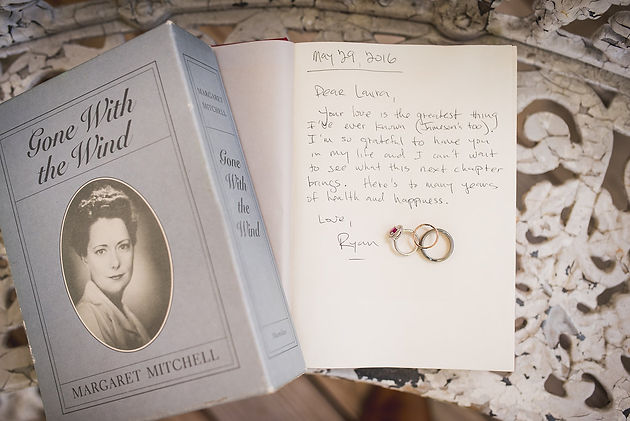 Gone With
the Wind
MARGARET MITCHELL
MARGARET
MITCHELL
Gone
With
the
Wind
May 29, 2016
Dear Laura,
Your love is the greatest thing
I've ever known (Jameson's too).
I'm so grateful to have you
in my life and I can't wait
to see what this next chapter
brings. Here's to many years
of health and happiness.
Love,
Ryan